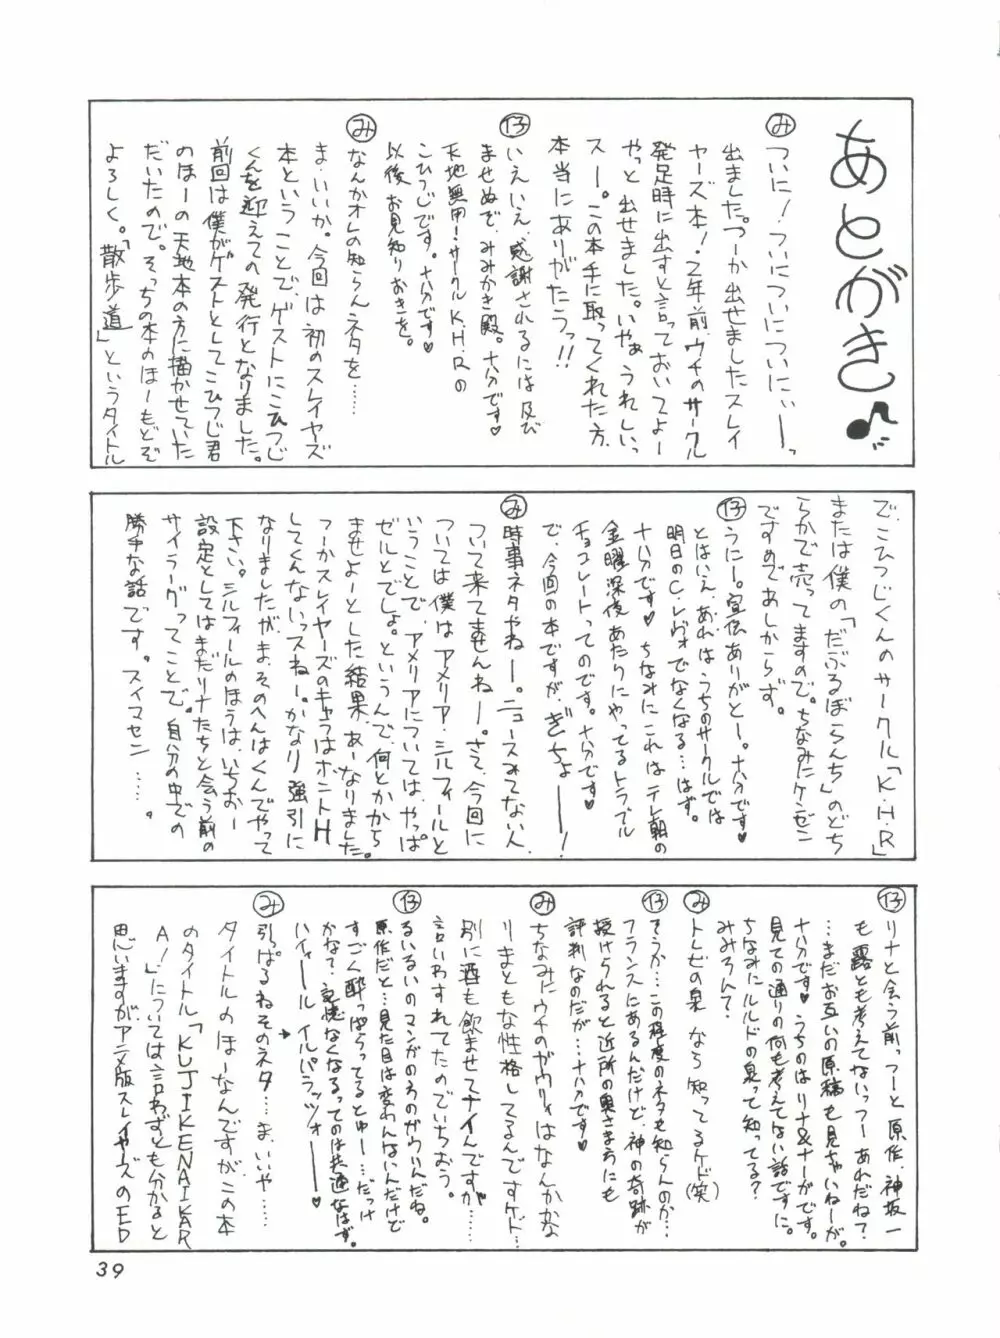 あとがき♪
み ついに!ついについについにぃぃーーっ
出ました。つーか出せましたスレイ
ヤーズ本!2年前、ウチのサークル
発足時に出すと言っておいてよー
やっと出せました。いやぁうれしいっ
スー。この本手に取ってくれた方、
本当にありがたうっ!!
仔 いえいえ、感謝されるには及び
ませぬで、みみかき殿。十分です♥
こひつじです。十分です♥
天地無用!サークルK.H.Rの
以後お見知りおきを。
み なんかオレの知らんネタを……
ま、いいか。今回は初のスレイヤーズ
本ということで、ゲストにこひつじ
くんを迎えての発行となりました。
前回は僕がゲストとしてこひつじ君
のほーの天地本の方に描かせていた
だいたので。そっちの本のほーもどぞ
よろしく。「散歩道」というタイトル
で、こひつじくんのサークル「K.H.R」
または僕の「だぶるぼらんち」のどち
らかで売ってますので。ちなみにケンゼン
ですのであしからず。
仔 うにー。宣伝ありがとー。十分です♥
とはいえ、あれは、うちのサークルでは
明日のC.レヴォでなくなる…はず。
十分です♥ちなみにこれはテレ朝の
金曜深夜あたりにやってるトラブル
チョコレートってのです。十分です♥
で、今回の本ですが、ぎちょーーー!
み 時事ネタやねー。ニュースみてない人
ついて来てませんねー。さて、今回に
ついては僕はアメリア、シルフィールと
いうことで、アメリアについては、やっぱ
ゼルとでしょ。というんで、何とかから
ませよーとした結果、あーなりました。
つーかスレイヤーズのキャラはホントH
してくんないっスねー。かなり強引に
なりましたが、ま、そのへんはくんでやって
下さい。シルフィールのほうは、いちおー
設定としてはまだリナたちと会う前の
サイラーグってことで。自分の中での
勝手な話です。スイマセン……。
仔 リナと会う前っつーと原作、神坂一
も露とも考えてないっつーあれだね?
…まだお互いの原稿も見ちゃいねーが。
十分です♥うちのはリナ&ナーガです。
見ての通りの何も考えてない話ですに。
ちなみにルルドの泉って知ってる?
みみろんて?
み トレビの泉なら知ってるケド(笑)
仔 そうか…この程度のネタも知らんのか…
フランスにあるんだけど、神の奇跡が
授けられると近所の奥さま方にも
評判なのだが…十分です♥
み ちなみにウチのガウリィはなんかかな
りまともな性格してるんですケド…
別に酒も飲ませてナイんですが…
言いわすれてたのでいちおう。
仔 るいるいのマンガの方のガウりんだね。
原作だと…見た目は変わんないんだけど
すごく酔っぱらってるとゆー…だっけ
かなて、記憶なくなるってのは共通なはず。
ハイィール イルパラッツォーーー♥
み 引っぱるねそのネタ……ま、いいや……
タイトルのほーなんですが、この本
のタイトル「KUJIKENAIKAR
A!」については言わずとも分かると
思いますがアニメ版スレイヤーズのED
39